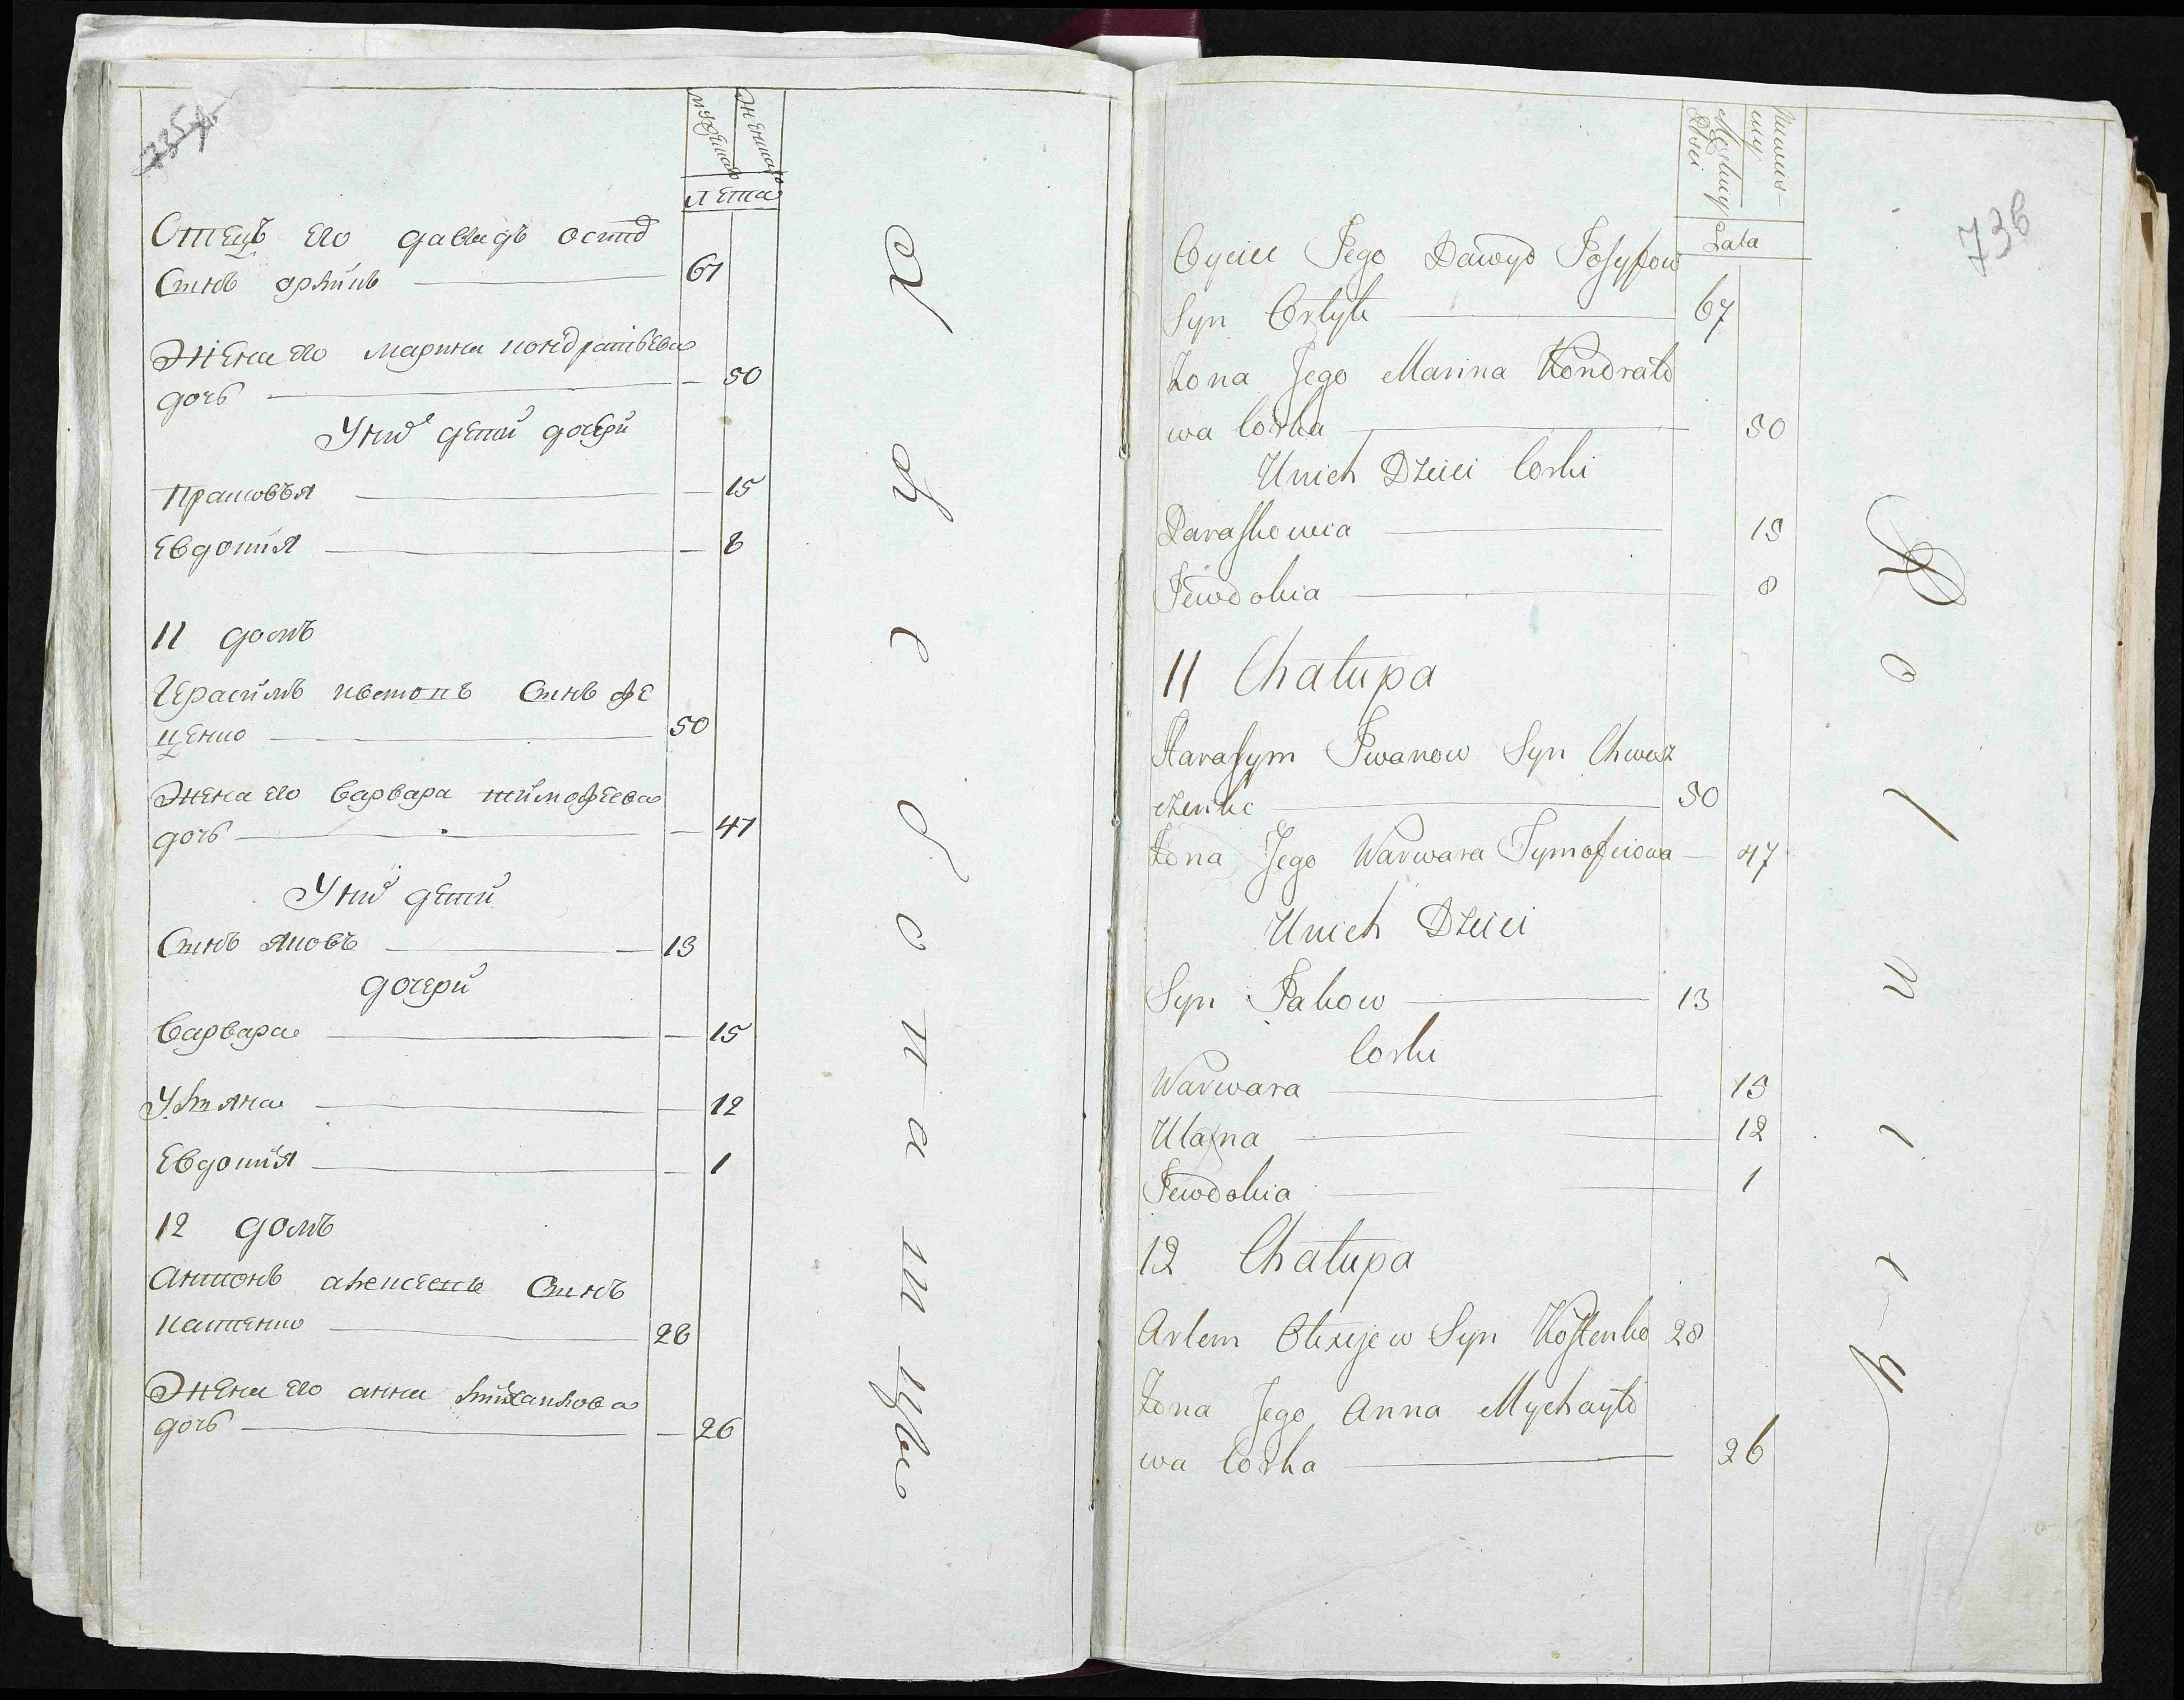 735
мужеска
женска
лета
Отецъ его давидъ осипо
Синъ орликъ 67
Жена его марина кондратьева
дочь 50
У них дети дочери
Прасковъя 15
Евдокия 8
11 домъ
Герасимъ ивановъ Синъ фе
щенко 50
Жена его варвара тимофеева
дочь 47
У них дети
Синъ яковъ 13
дочери
варвара 15
Ульяна 12
Евдокия 1
12 домъ
Антонъ алексеевъ Синъ
костенко 28
Жена его анна михайлова
дочь 26
736
Męskiey
Płci
Lata
Oyciec Jego Dawyd Josypow
Syn Orlyk 67
Żona Jego Marina Kondrato
wa Corka 50
Unich Dzieci Corki
Paraskowia 15
Jewdokia 8
11 Chałupa
Harasym Iwanow Syn Chwesz
czenko 50
Żona Jego Warwara Tymofeiowa 47
Unich Dzieci
Syn Jakow 13
Corki
Warwara 15
Ulana 12
Jewdokia 1
12 Chałupa
Artem Olexijew Syn Kostenko 28
Żona Jego Anna Mychayło
wa Corka 26